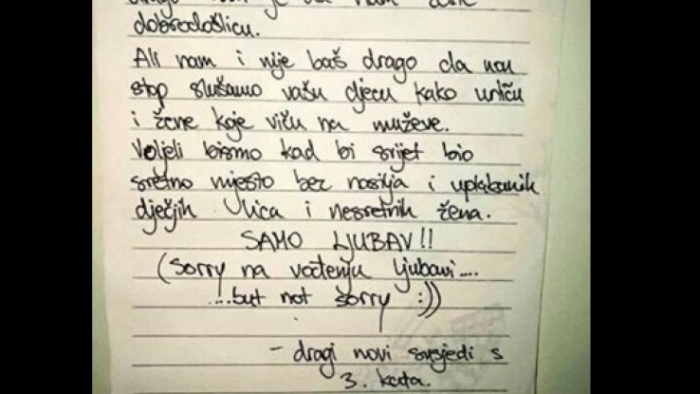 drago
dobrodošlicu.
Ali nam i nije baš drago da non
stop slušamo vašu djecu kako urliču
i žene koje viču na muževe.
Voljeli bismo kad bi svijet bio
sretno mjesto bez nasilja i uplakanih
dječjih lica i nesretnih žena.
SAMO LJUBAV!!
(Sorry na vođenju ljubavi....
...but not sorry :))
- dragi novi susjedi s
3. kata.